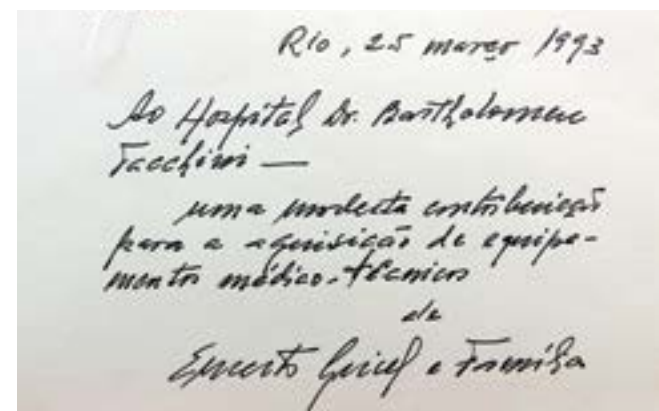 Rio, 25 março 1993
Ao Hospital Dr. Bartholomeu
Tacchini —
uma modesta contribuição
para a aquisição de equipa-
mentos médico-técnicos
de
Ernesto Geisel e Família